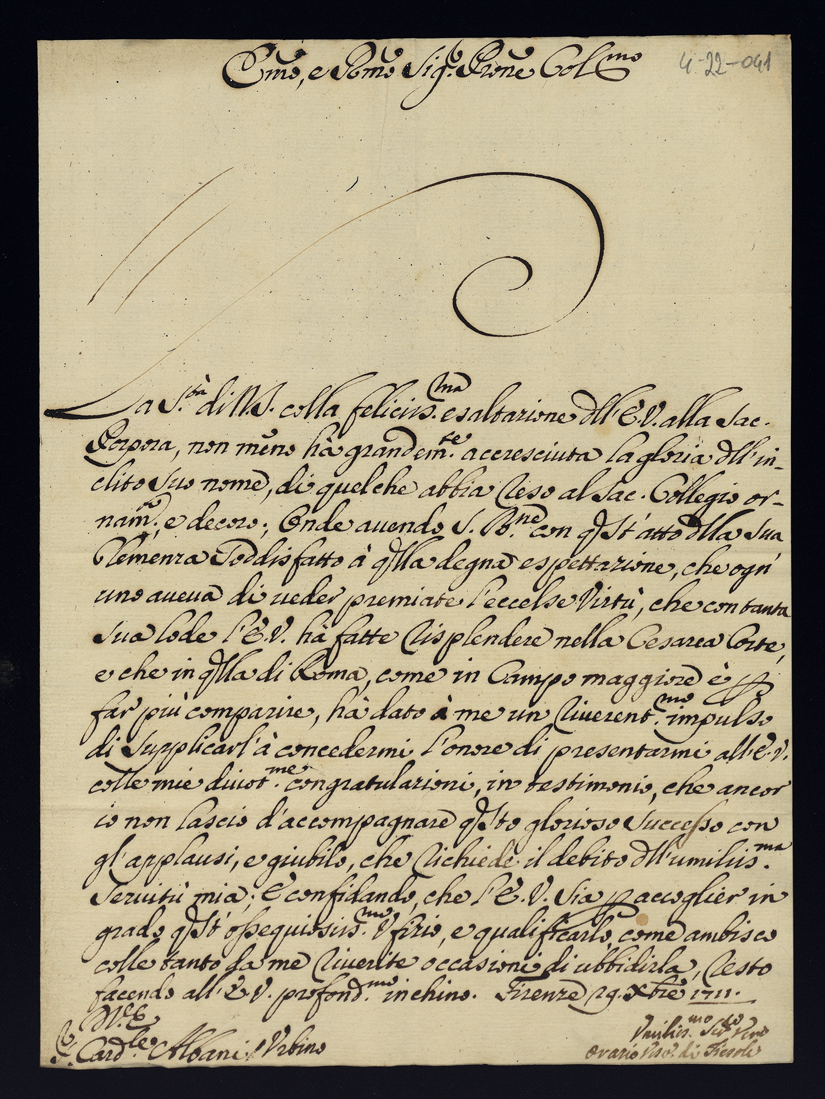 Emo, e Rmo Sigr. Prone Colmo
4-22-041
La S.tà di N.S. colla feliciss.ma esaltazione dll'E.V. alla Sac.
Porpora, non meno hà grandem.te accresciuta la gloria dll'in-
clito suo nome, di quelche abbia reso al Sac. Collegio or-
nam.to, e decoro; Onde avendo S. B.ne con qst'atto dlla sua
Clemenza soddisfatto à qlla degna espettazione, che ogn'
uno aveva di veder premiate l'eccelse Virtù, che con tanta
sua lode l'E.V. hà fatte risplendere nella Cesarea Corte,
e che in qlla di Roma, come in Campo maggiore è p
far più comparire, hà dato à me un riverent.mo impulso
di supplicarl'à concedermi l'onore di presentarmi all'E.V.
colle mie divot.me congratulazioni, in testimonio, che ancor
io non lascio d'accompagnare qsto glorioso successo con
gl'applausi, e giubilo, che richiede il debito dll'umiliss.ma
servitù mia; E confidando, che l'E.V. sia p accoglier in
grado qst'ossequiosiss.mo Ufizio, e qualificarlo, come ambisco
colle tanto da me riverite occasioni di ubbidirla, resto
facendo all'E.V. profond.mo inchino. Firenze 29. Xbre 1711.
Di V.E.
S. Card.le Albani / Urbino
Umiliss.mo Ser.re Vero
Orazio Vesc.o di Fiesole